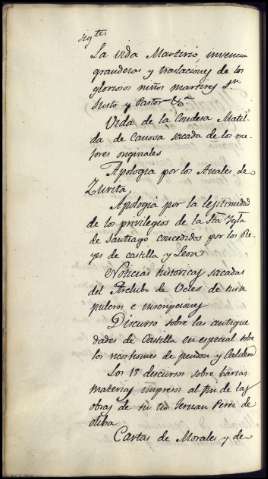 sigtes
La vida Martirio, invencn
grandezas y traslaciones de los
gloriosos niños martires Sn
Justo y Pastor &a.
Vida de la Condesa Matil
da de Canosa sacada de los au
tores originales
Apologia por los Anales de
Zurita
Apologia por la legitimidad
de los privilegios de la Sta Ygla
de Santiago concedidos por los Re
yes de Castilla y Leon
Noticias historicas sacadas
del Archibo de Ucles de sus se
pulcros e inscripciones
Discurso sobre las antigue
dades de Castilla en especial sobre
los ricoshomes de pendon y Caldera
Los 15 discursos sobre barias
materias impresos al fin de las
obras de su tio Fernan Perez de
Oliba
Cartas de Morales y de